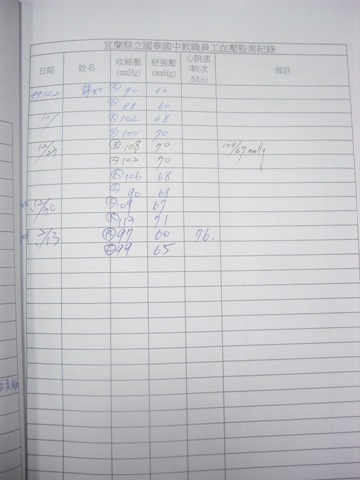 宜蘭縣立國華國中教職員工血壓監測紀錄
日期 姓名 收縮壓 (mmHg) 舒張壓 (mmHg) 心跳速率(次/Min) 備註
90 60
88 60
12/ 102 68
100 70
12/27 108 70 104/67 mmHg
102 70
106 68
90 68
12/30 109 67
112 71
3/13 97 60 76.
99 65